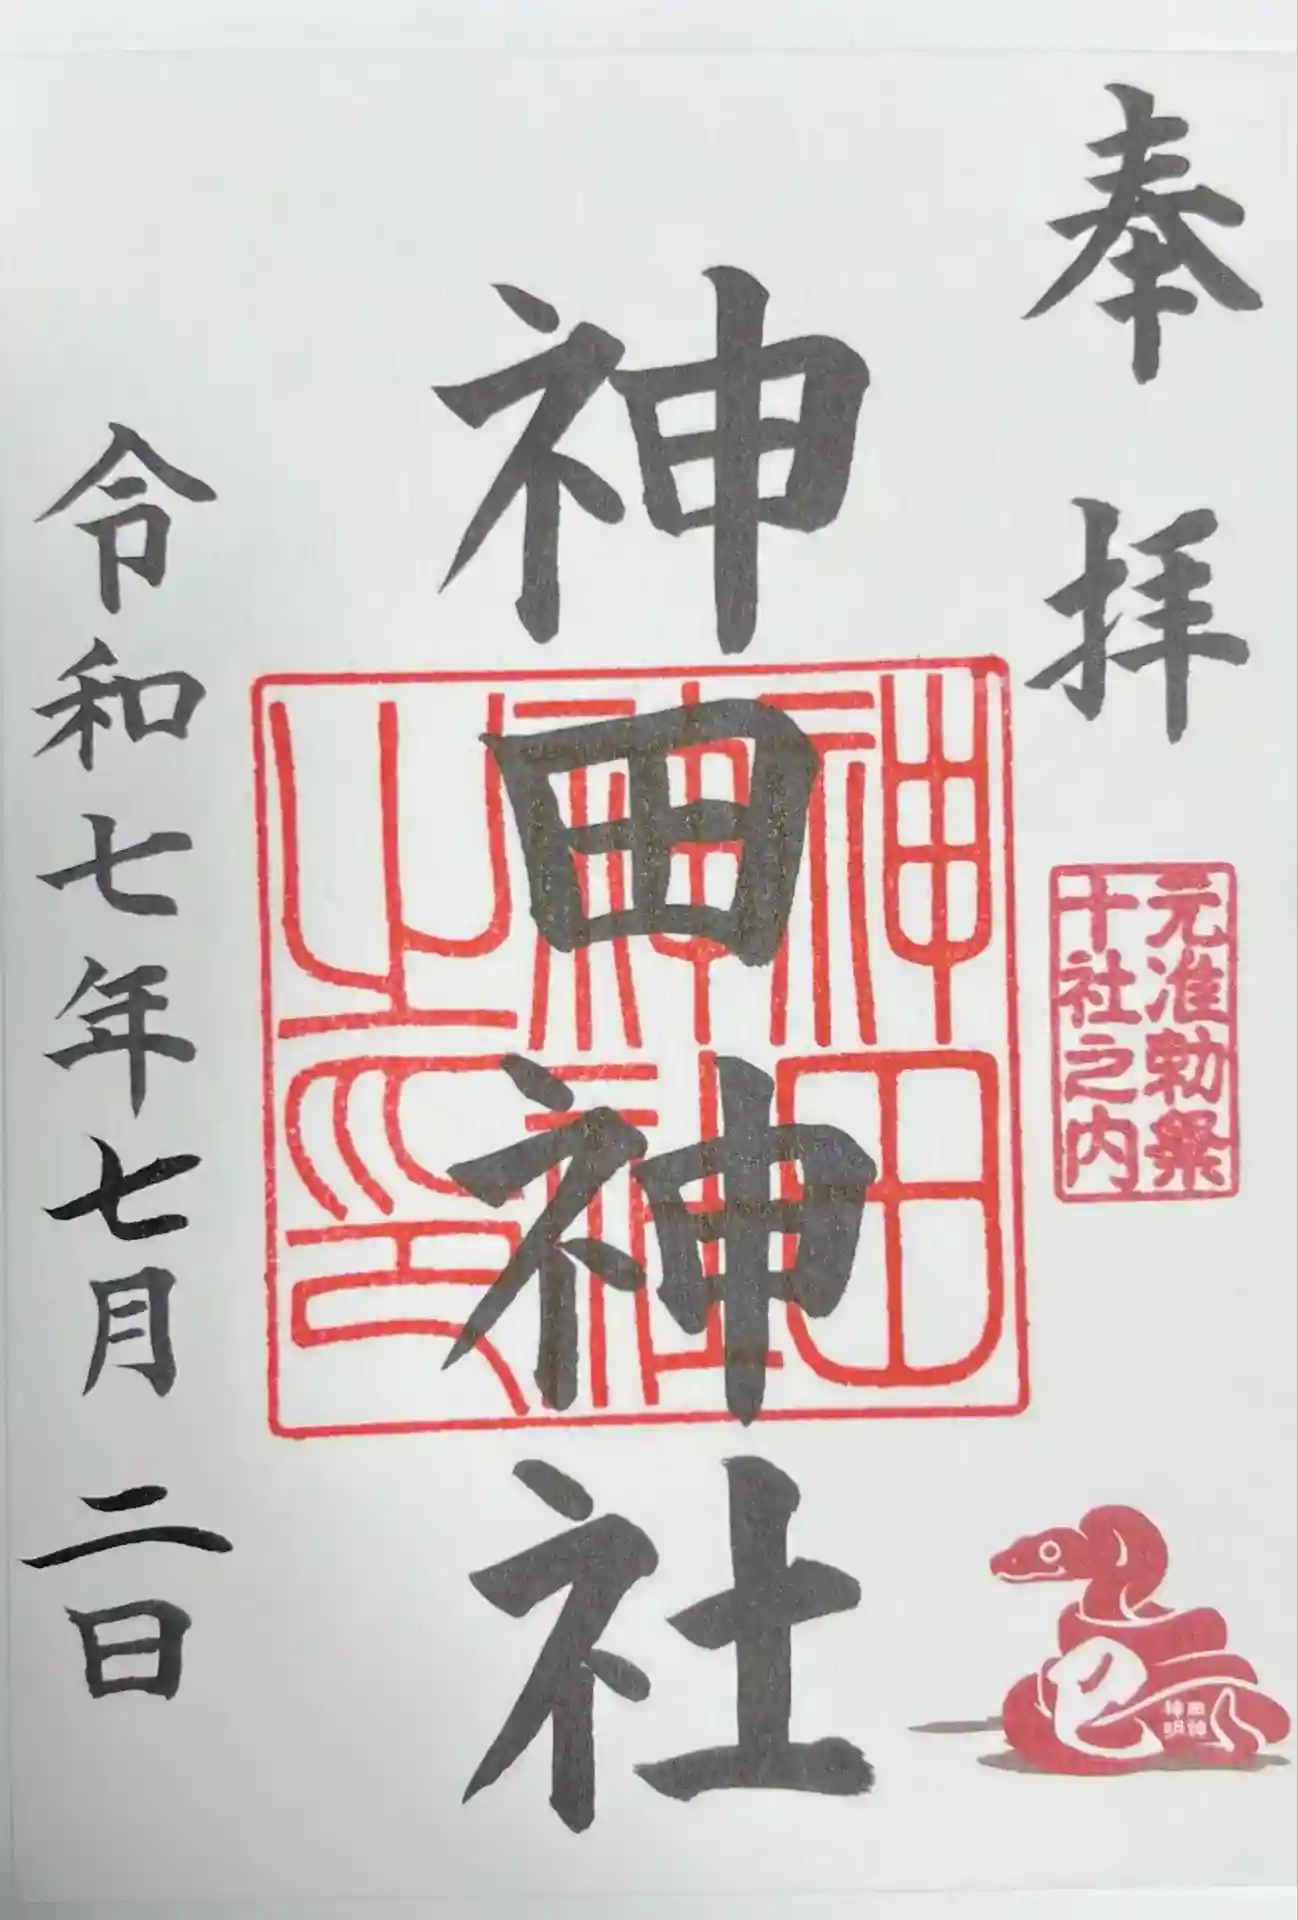 奉拝
元准勅祭
十社之内
巳
神田神社
神田
神社
之印
令和七年七月二日